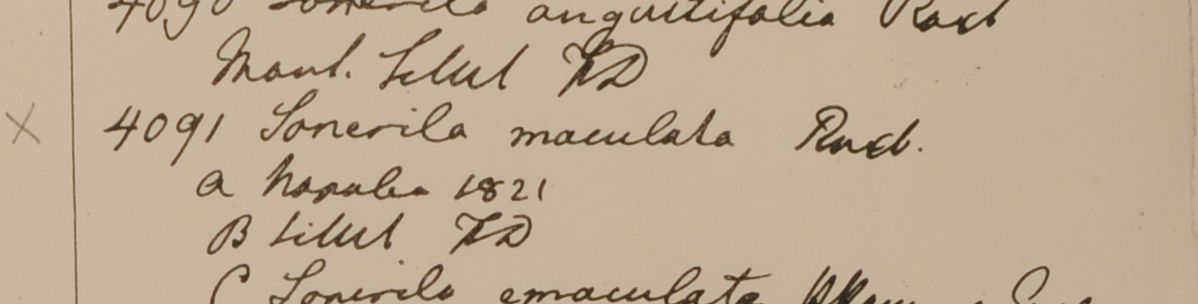 4090 Sonerila angustifolia Roxb
Mont. Sillet FD
4091 Sonerila maculata Roxb.
a Napalia 1821
B Sillet FD
C Sonerila emaculata